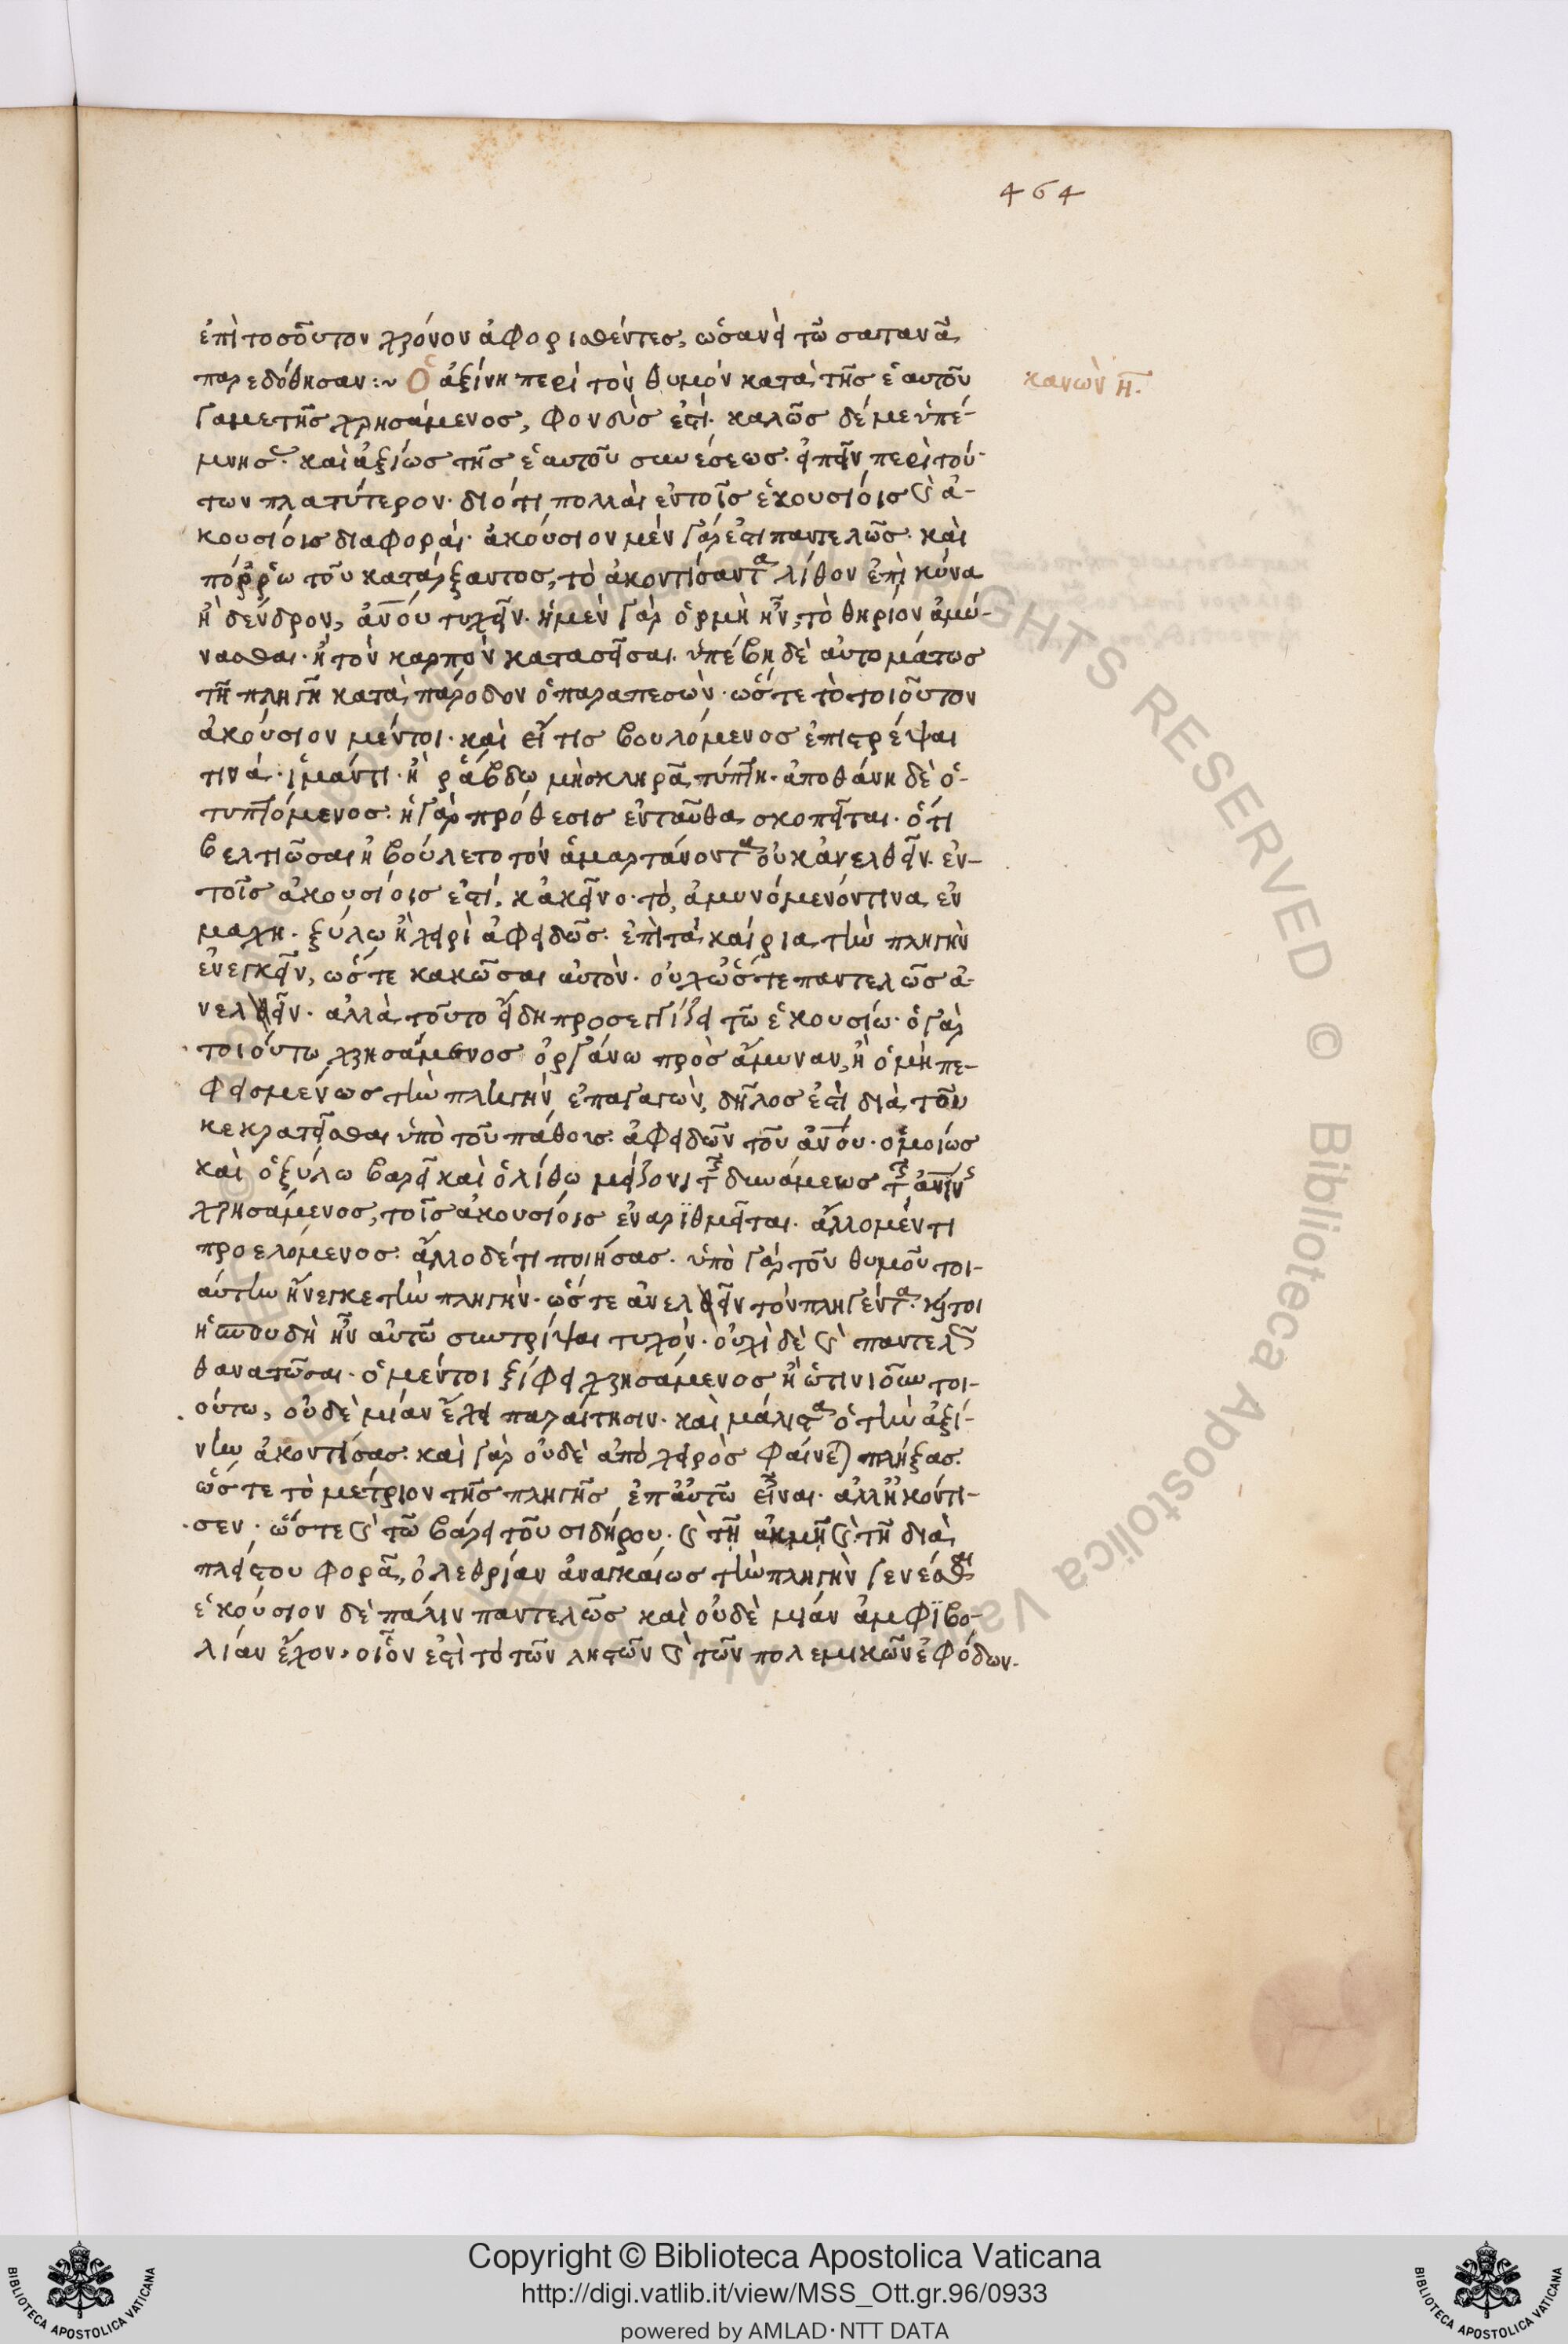 464
ἐπὶ τοσοῦτον χρόνον ἀφορισθέντες, ὡσανεὶ τῶ σατανᾶ
παρεδόθησαν :~ Ὁ ἀξίνη περὶ τὸν θυμὸν κατὰ τῆς ἑαυτοῦ
κανὼν η.
γαμετῆς χρησάμενος, φονεύς ἐστι. καλῶς δέ με ὑπέ-
μνησ. καὶ ἀξίως τῆς ἑαυτοῦ συνέσεως. εἰπεῖν περὶ τού-
των πλατύτερον. διότι πολλαὶ ἐν τοῖς ἑκουσίοις καὶ ἀ-
κουσίοις διαφοραί. ἀκούσιον μὲν γάρ ἐστι παντελῶς. καὶ
πόρρω τοῦ κατάρξαντος, τὸ ἀκοντίσαντα λίθον ἐπὶ κύνα
ἢ δένδρον, ἀνου τυχεῖν. ἡ μὲν γὰρ ὁρμὴ ἦν, τὸ θηρίον ἀμύ-
νασθαι. ἢ τὸν καρπὸν κατασεῖσαι. ὑπέβη δὲ αὐτομάτως
τῆ πληγῆ κατὰ πάροδον ὁ παραπεσών. ὥστε τὸ τοιοῦτον
ἀκούσιον μέντοι. καὶ εἴ τις βουλόμενος ἐπιστρέψαι
τινά. ἱμάντι. ἢ ράβδω μὴ σκληρᾶ τύπτη. ἀποθάνη δὲ ὁ
τυπτόμενος. ἡ γὰρ πρόθεσις ἐνταῦθα σκοπεῖται. ὅτι
βελτιῶσαι ἠβούλετο τὸν ἁμαρτάνοντα οὐκ ἀνελθεῖν. ἐν
τοῖς ἀκουσίοις ἐστί. κἀκεῖνο. τὸ, ἀμυνόμενόν τινα ἐν
μάχη. ξύλω ἢ χειρὶ ἀφειδῶς. ἐπὶ τὰ καίρια τὴν πληγὴν
ἐνεγκεῖν, ὥστε κακῶσαι αὐτόν. οὐχ ὥστε παντελῶς ἀ-
νελεῖν. ἀλλὰ τοῦτο ἤδη προσεγγίζει τῶ ἑκουσίω. ὁ γὰρ
τοιούτω χρησάμενος ὀργάνω πρὸς ἄμυναν, ἢ ὁ μὴ πε-
φεισμένως τὴν πληγὴν ἐπαγαγών, δῆλός ἐστι διὰ τοῦ
κεκρατεῖσθαι ὑπὸ τοῦ πάθους. ἀφειδῶν τοῦ ἀνου. ὁμοίως
καὶ ὁ ξύλω βαρεῖ καὶ ὁ λίθω μείζονι τῆς δυνάμεως τῆς ἀνίνης
χρησάμενος, τοῖς ἀκουσίοις ἐναριθμεῖται. ἄλλο μέν τι
προελόμενος. ἄλλο δέ τι ποιήσας. ὑπὸ γὰρ τοῦ θυμοῦ τοι-
αύτην ἤνεγκε τὴν πληγήν. ὥστε ἀνελεῖν τὸν πληγέντα. καίτοι
ἡ σπουδὴ ἦν αὐτῶ συντρίψαι τυχόν. οὐχὶ δὲ καὶ παντελῶς
θανατῶσαι. ὁ μέντοι ξίφει χρησάμενος ἢ ὡτινιοῦν τοι-
ούτω, οὐδὲ μίαν ἔχει παραίτησιν. καὶ μάλιστα ὁ τὴν ἀξί-
νην ἀκοντίσας. καὶ γὰρ οὐδὲ ἀπὸ χειρὸς φαίνεται πλήξας.
ὥστε τὸ μέτριον τῆς πληγῆς ἐπ' αὐτῶ εἶναι. ἀλλ' ἠκόντι-
σεν. ὥστε καὶ τῶ βάρει τοῦ σιδήρου. καὶ τῆ ἀκμῆ καὶ τῆ διὰ
πλείστου φορᾶ, ὀλεθρίαν ἀναγκαίως τὴν πληγὴν γενέσθαι
ἑκούσιον δὲ πάλιν παντελῶς καὶ οὐδὲ μίαν ἀμφιβο-
λίαν ἔχον, οἷόν ἐστι τὸ τῶν ληστῶν καὶ τῶν πολεμικῶν ἐφόδων.
Copyright © Biblioteca Apostolica Vaticana
http://digi.vatlib.it/view/MSS_Ott.gr.96/0933
powered by AMLAD·NTT DATA